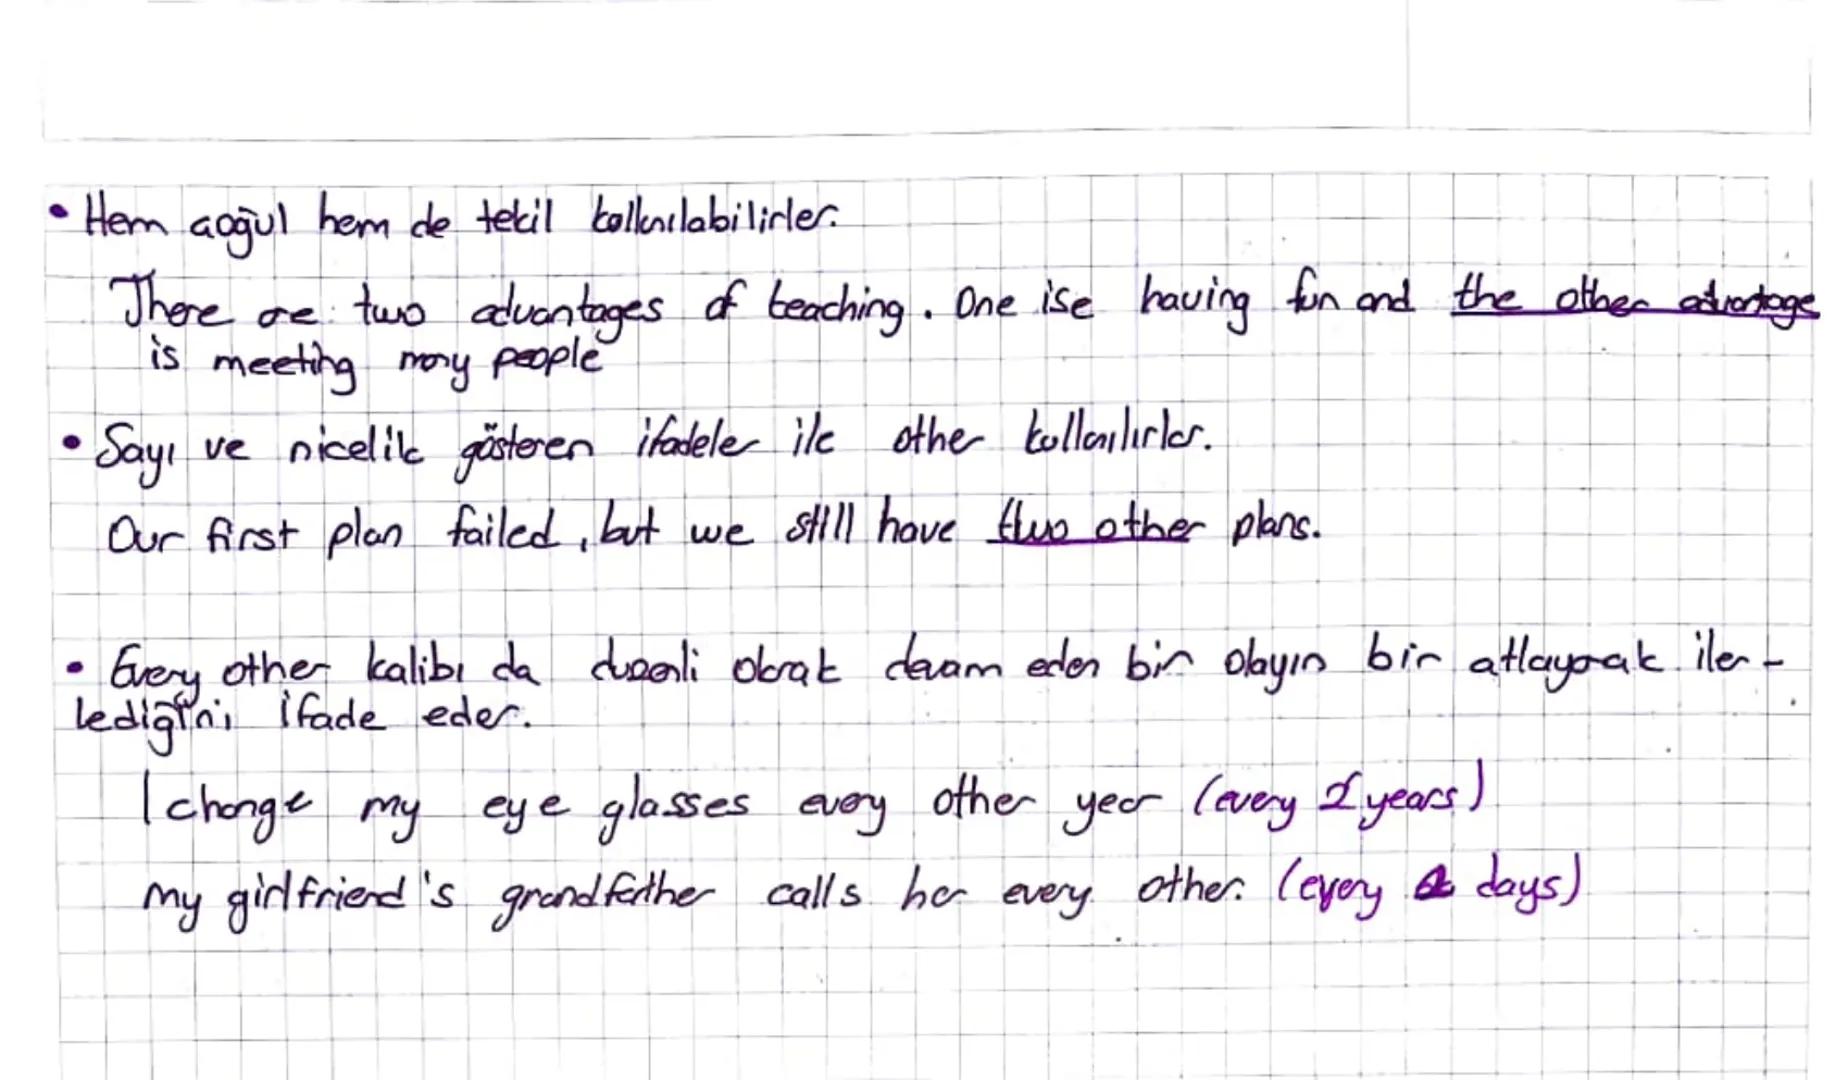 • Hem çoğul hem de tekil kullanılabilirler.
There are two advantages of teaching. One ise having fun and the other advantage
is meeting many people
• Sayı ve nicelik gösteren ifadeler ile other kullanılırlar.
Our first plan failed, but we still have two other plans.
• Every other kalibı da düzenli olarak devam eden bir olayın bir atlayarak iler-
lediğini ifade eder.
I change my eye glasses every other year (every 2 years)
my girlfriend's grandfather calls her every other. (every 2 days)